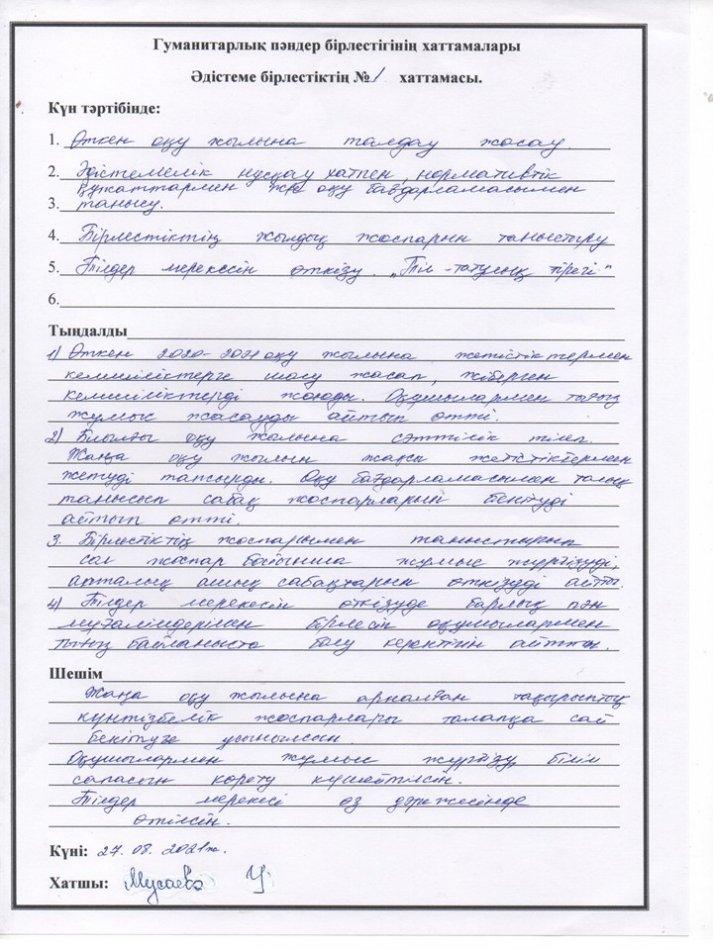 Гуманитарлық пәндер бірлестігінің хаттамалары
Әдістеме бірлестіктің №1 хаттамасы.
Күн тәртібінде:
1. Өткен оқу жылына талдау жасау.
2. Әдістемелік нұсқау хатпен, нормативтік
құжаттармен және оқу бағдарламасымен
3. танысу.
4. Бірлестіктің жылдық жоспарын таныстыру
5. Тілдер мерекесін өткізу. „Тіл-татулық тірегі"
6.
Тыңдалды
1) Өткен 2020-2021 оқу жылына жетістіктермен
кемшіліктерге шолу жасап, жіберген
кемшіліктерді жоюды. Оқушылармен тығыз
жұмыс жасауды айтып өтті.
2) Биылғы оқу жылына сәттілік тілеп.
Жаңа оқу жылын жақсы жетістіктермен
жетуді тапсырды. Оқу бағдарламасымен толық
танысып сабақ жоспарларын бекітуді
айтып өтті.
3. Бірлестіктің жоспарымен таныстырып
сол жоспар бойынша жұмыс жүргізуді,
апталық ашық сабақтарын өткізуді айтты.
4) Тілдер мерекесін өткізуде барлық пән
мұғалімдерімен бірлесіп оқушылармен
тығыз байланыста болу керектігін айтты.
Шешім
Жаңа оқу жылына арналған тақырыптық
күнтізбелік жоспарлары талапқа сай
бекітуге ұсынылсын.
Оқушылармен жұмыс жүргізу, білім
сапасын көрету күшейтілсін.
Тілдер мерекесі өз дәрежесінде
өтілсін.
Күні: 27.08.2021ж.
Хатшы: Мусаева У